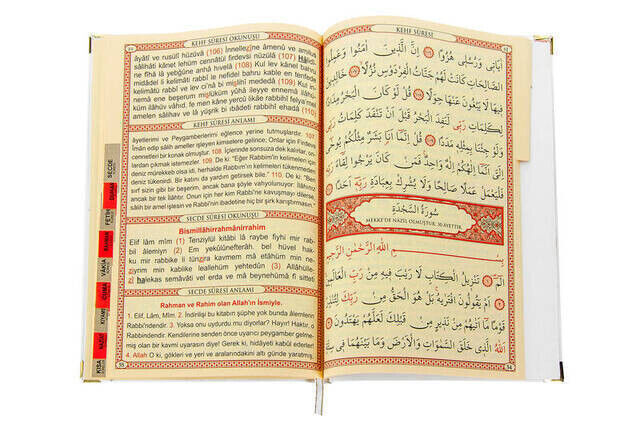 KEHF SÛRESİ OKUNUŞU
âyâtî ve rusulî hüzüvâ (106) İnnellezîne âmenû ve amilus
sâlihâti kânet lehüm cennâtül firdevsi nüzülâ (107) Hâlidî-
ne fîhâ lâ yebğûne anhâ hıvelâ (108) Kul lev kânel bahru
midâdel li kelimâti rabbî le nefidel bahru kable en tenfede
kelimâtü rabbî ve lev ci'nâ bi mislihî mededâ (109) Kul in-
nemâ ene beşerum mislüküm yûhâ ileyye ennemâ ilâhü-
küm ilâhüv vâhıd, fe men kâne yercû likâe rabbihî felya'mel
amelen sâlihav ve lâ yüşrik bi ıbâdeti rabbihî ehadâ (110)
KEHF SÛRESİ ANLAMI
âyetlerime ve Peygamberlerimi eğlence yerine tutmuşlardır. 107.
İman edip salih ameller işleyen kimselere gelince; Onlar için Firdevs
cennetleri bir konak olmuştur. 108. İçlerinde sonsuza dek kalırlar, on-
lardan çıkmak istemezler. 109. De ki: "Eğer Rabbimin kelimeleri için
deniz mürekkep olsa idi, herhalde Rabbimin kelimeleri tükenmeden
deniz tükenirdi. Bir katını da yardım getirsek bile." 110. De ki: "Ben
sırf sizin gibi bir beşerim, ancak bana şöyle vahyolunuyor: İlâhınız
ancak bir tek ilâhtır. Onun için her kim Rabbi'ne kavuşmayı dilerse
salih amel işlesin ve Rabbi'nin ibadetine hiç bir şirk karıştırmasın.
SECDE SÛRESİ OKUNUŞU
Bismillâhirrahmânirrahîm
Elif lâm mîm (1) Tenzîlül kitâbi lâ raybe fîyhi mir rab-
bil âlemiyn (2) Em yekûlûnefterâh, bel hüvel hak-
ku mir rabbike li tünzira kavmem mâ etâhüm min ne-
ziyrim min kablike leallehüm yehtedûn (3) Allâhülle-
zî halekas semâvâti vel erda ve mâ beynehümâ fî sitteti
SECDE SÛRESİ ANLAMI
Rahman ve Rahim olan Allah'ın İsmiyle.
1. Elif, Lâm, Mîm. 2. İndirilişi bu kitabın şüphe yok bunda âlemlerin
Rabbi'ndendir. 3. Yoksa onu uydurdu mu diyorlar? Hayır! Haktır, o
Rabbindendir. Kendilerine senden önce uyarıcı peygamber gelme-
miş olan bir kavmi uyarasın diye! Gerek ki, hidâyeti kabûl ederler!
4. Allah O ki, gökleri ve yeri ve aralarındakini altı günde yaratmış,
SECDE
DUHAN
FETİH
RAHMAN
VAKIA
CUMA
KIYAMET
KISA
KEHF SÛRESİ
اٰيَاتٖي وَرُسُلٖي هُزُوًا ﴿١٠٦﴾ اِنَّ الَّذٖينَ اٰمَنُوا وَعَمِلُوا
الصَّالِحَاتِ كَانَتْ لَهُمْ جَنَّاتُ الْفِرْدَوْسِ نُزُلًا ﴿١٠٧﴾ خَالِدٖينَ
فٖيهَا لَا يَبْغُونَ عَنْهَا حِوَلًا ﴿١٠٨﴾ قُلْ لَوْ كَانَ الْبَحْرُ مِدَادًا
لِكَلِمَاتِ رَبّٖي لَنَفِدَ الْبَحْرُ قَبْلَ اَنْ تَنْفَدَ كَلِمَاتُ رَبّٖي
وَلَوْ جِئْنَا بِمِثْلِهٖ مَدَدًا ﴿١٠٩﴾ قُلْ اِنَّمَا اَنَا بَشَرٌ مِثْلُكُمْ يُوحٰى
اِلَيَّ اَنَّمَا اِلٰهُكُمْ اِلٰهٌ وَاحِدٌ فَمَنْ كَانَ يَرْجُوا لِقَاءَ رَبِّهٖ
فَلْيَعْمَلْ عَمَلًا صَالِحًا وَلَا يُشْرِكْ بِعِبَادَةِ رَبِّهٖ اَحَدًا ﴿١١٠﴾
سُورَةُ السَّجْدَةِ
MEKKE'DE NAZİL OLMUŞTUR. 30 AYETTİR.
بِسْمِ اللّٰهِ الرَّحْمٰنِ الرَّحٖيمِ
الٓمٓ ﴿١﴾ تَنْزٖيلُ الْكِتَابِ لَا رَيْبَ فٖيهِ مِنْ رَبِّ الْعَالَمٖينَ ﴿٢﴾
اَمْ يَقُولُونَ افْتَرٰيهُ بَلْ هُوَ الْحَقُّ مِنْ رَبِّكَ لِتُنْذِرَ
قَوْمًا مَا اَتٰيهُمْ مِنْ نَذٖيرٍ مِنْ قَبْلِكَ لَعَلَّهُمْ يَهْتَدُونَ ﴿٣﴾
اَللّٰهُ الَّذٖي خَلَقَ السَّمٰوَاتِ وَالْاَرْضَ وَمَا بَيْنَهُمَا فٖي